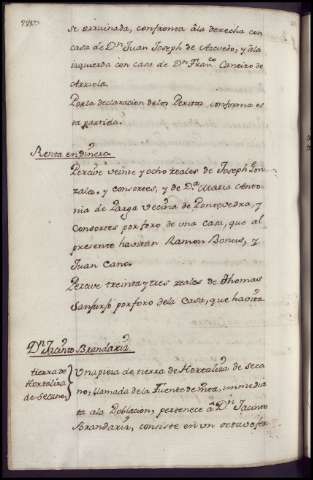 se arruinada, confronta âla derecha con
casa de Dn. Juan Joseph de Azevedo, y âla
izquierda con casa de Dn. Franco.
Por la declaracion delos Peritos conforma es
ta partida.
Renta en dinero
Percive veinte y ocho reales de Joseph Gon
zalez, y consortes, y de Da. Maria Anto
nia de Parga vecina de Pontevedra, y
Consortes por foro de una casa, que al
presente havitan Ramon y
Juan Cano.
Percive treinta y tres reales de Thomas
por foro dela Casa, que havita
Dn. Jacinto Brandariz
tierra de
Hortaliza
de Secano
Una pieza de tierra de Hortaliza de Seca
no, llamada de la Fuente de immedia
ta ala Poblacion, pertenece â Dn. Jacinto
Brandariz, consiste en un octavo fer